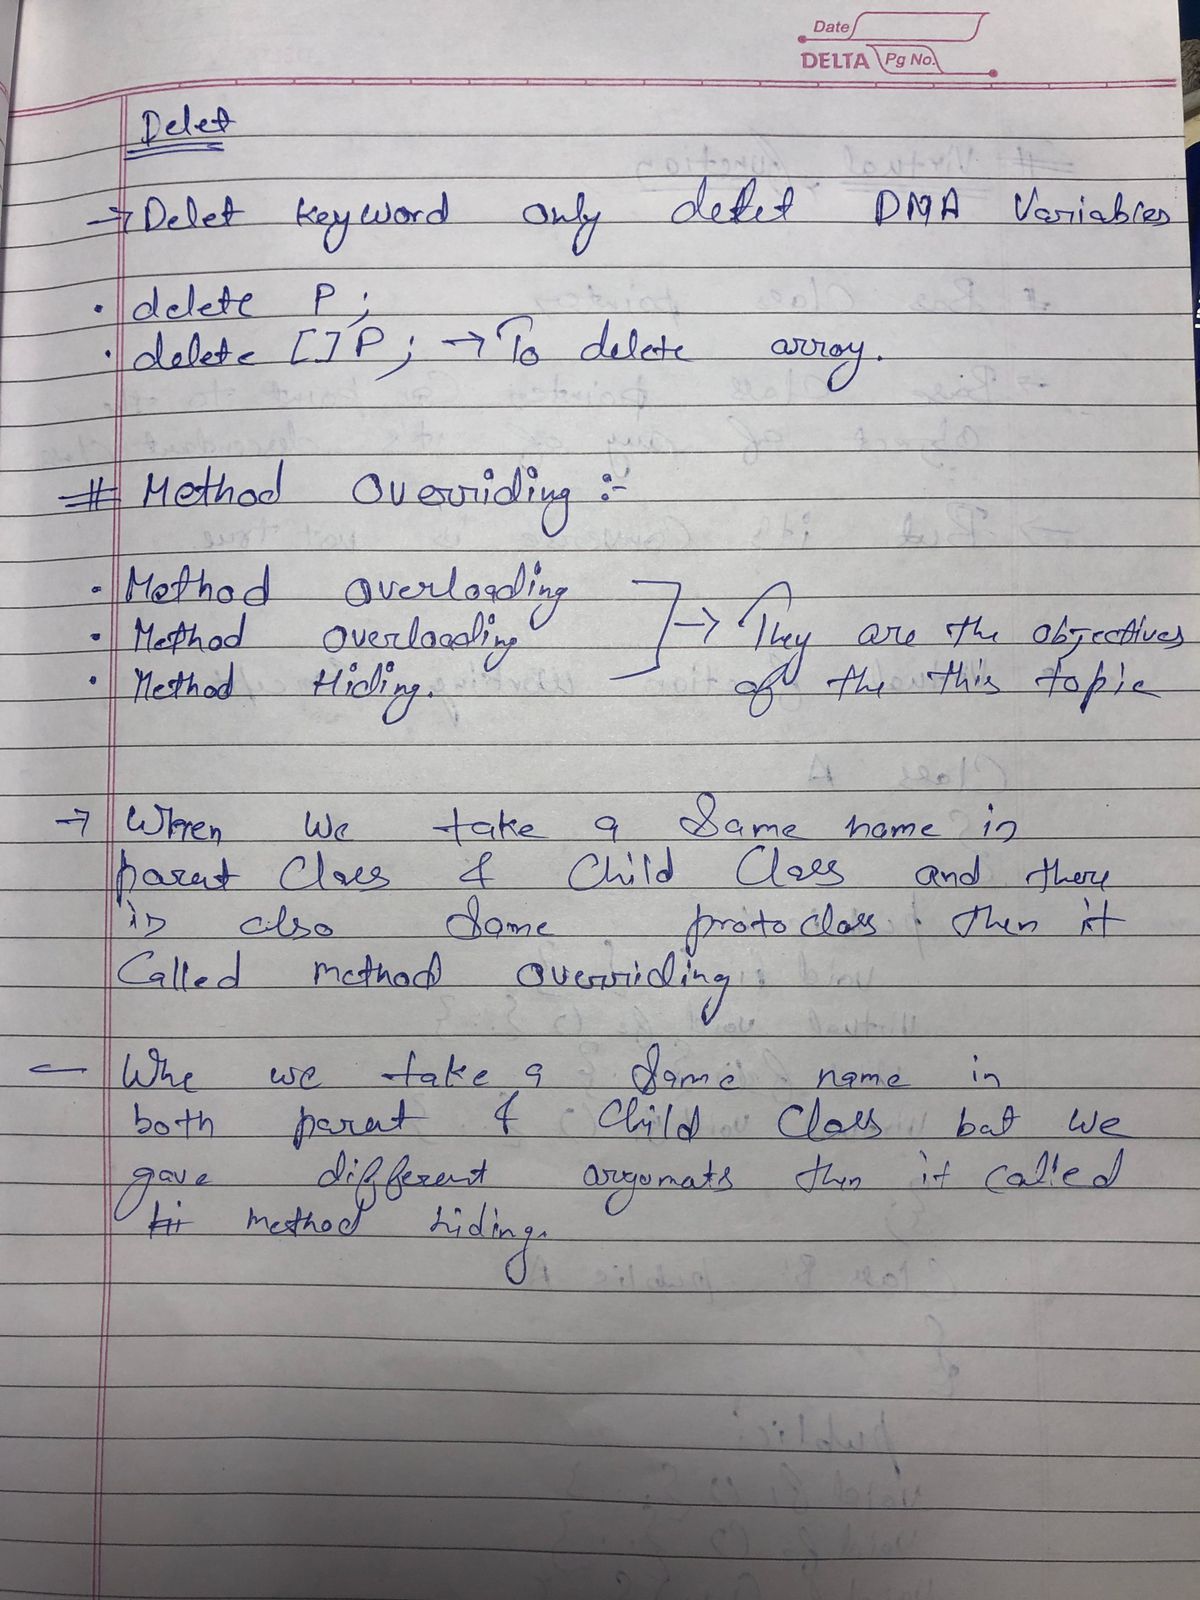 Date
DELTA Pg No.
Delet
→ Delet keyword only delet DMA Variables
• delete P;
• delete []P; → To delete array.
# Method Overriding :-
• Method overloading
• Method overloading → They are the objectives
• Method Hiding. of the this topic
→ When we take a Same name in
parent Class & Child Class and there
is also Same proto class then it
Called method overriding.
— Whe we take a Same name in
both parent & Child Class bat we
gave different argumats then it called
method hiding.